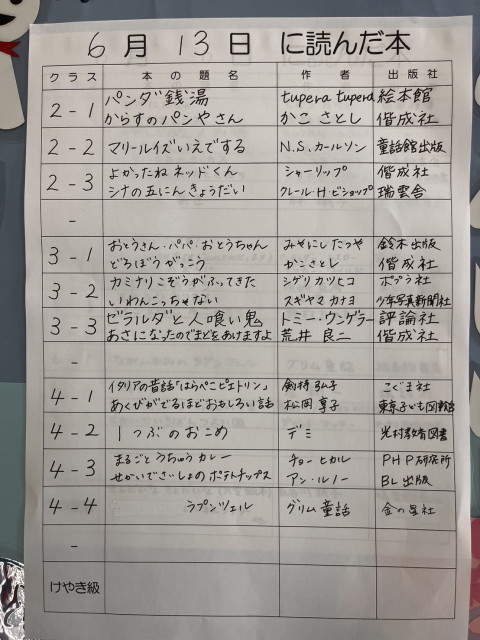 6月13日 に読んだ本
クラス 本の題名 作者 出版社
2-1 パンダ銭湯 tupera tupera 絵本館
からすのパンやさん かこ さとし 偕成社
2-2 マリールイズいえでする N.S.カールソン 童話館出版
2-3 よかったね ネッドくん シャーリップ 偕成社
シナの五にんきょうだい クレール・H・ビショップ 瑞雲舎
-
3-1 おとうさん・パパ・おとうちゃん みやにしたつや 鈴木出版
どろぼうがっこう かこさとし 偕成社
3-2 カミナリこぞうがふってきた シゲリカツヒコ ポプラ社
いわんこっちゃない スギヤマカナヨ 少年写真新聞社
3-3 ゼラルダと人喰い鬼 トミー・ウンゲラー 評論社
あさになったのでまどをあけますよ 荒井良二 偕成社
-
4-1 イタリアの昔話「はらぺこピエトリン」 剣持弘子 こぐま社
あくびがでるほどおもしろい話 松岡享子 東京子ども図書館
4-2 1つぶのおこめ デミ 光村教育図書
4-3 まるごとうちゅうカレー チョーヒカル PHP研究所
せかいでさいしょのポテトチップス アン・ルノー BL出版
4-4 ラプンツェル グリム童話 金の星社
-
けやき級